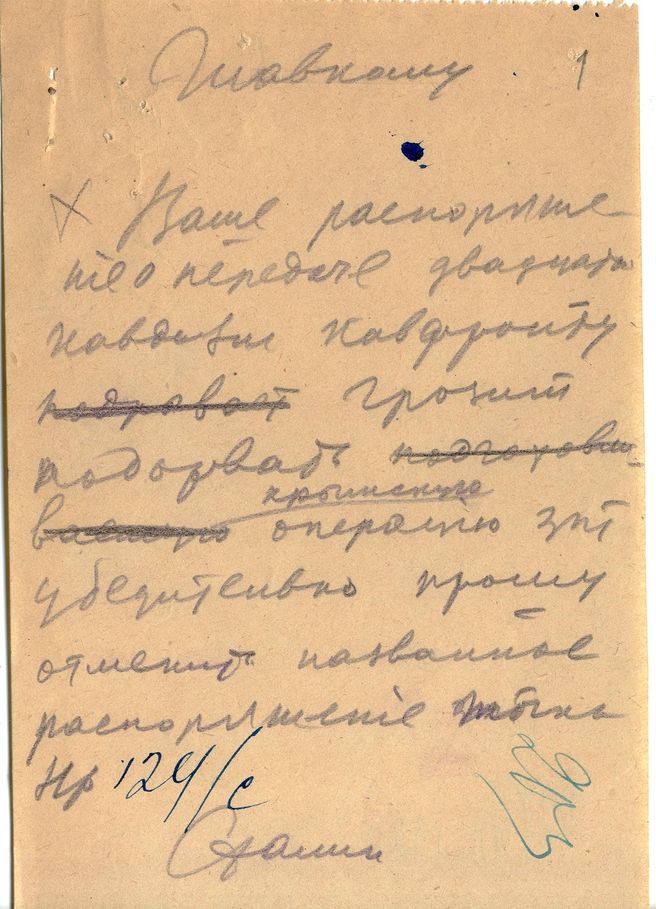 Главкому
1
Ваше распоряже-
ніе о передаче двадцати
кавдивзи Кавфронту
подрвать грозит
подорвать подготовли-
крымскую
ваемую операцію зпт
убедительно прошу
отменить названное
распоряженіе точка
Нр 124/с
Сталин